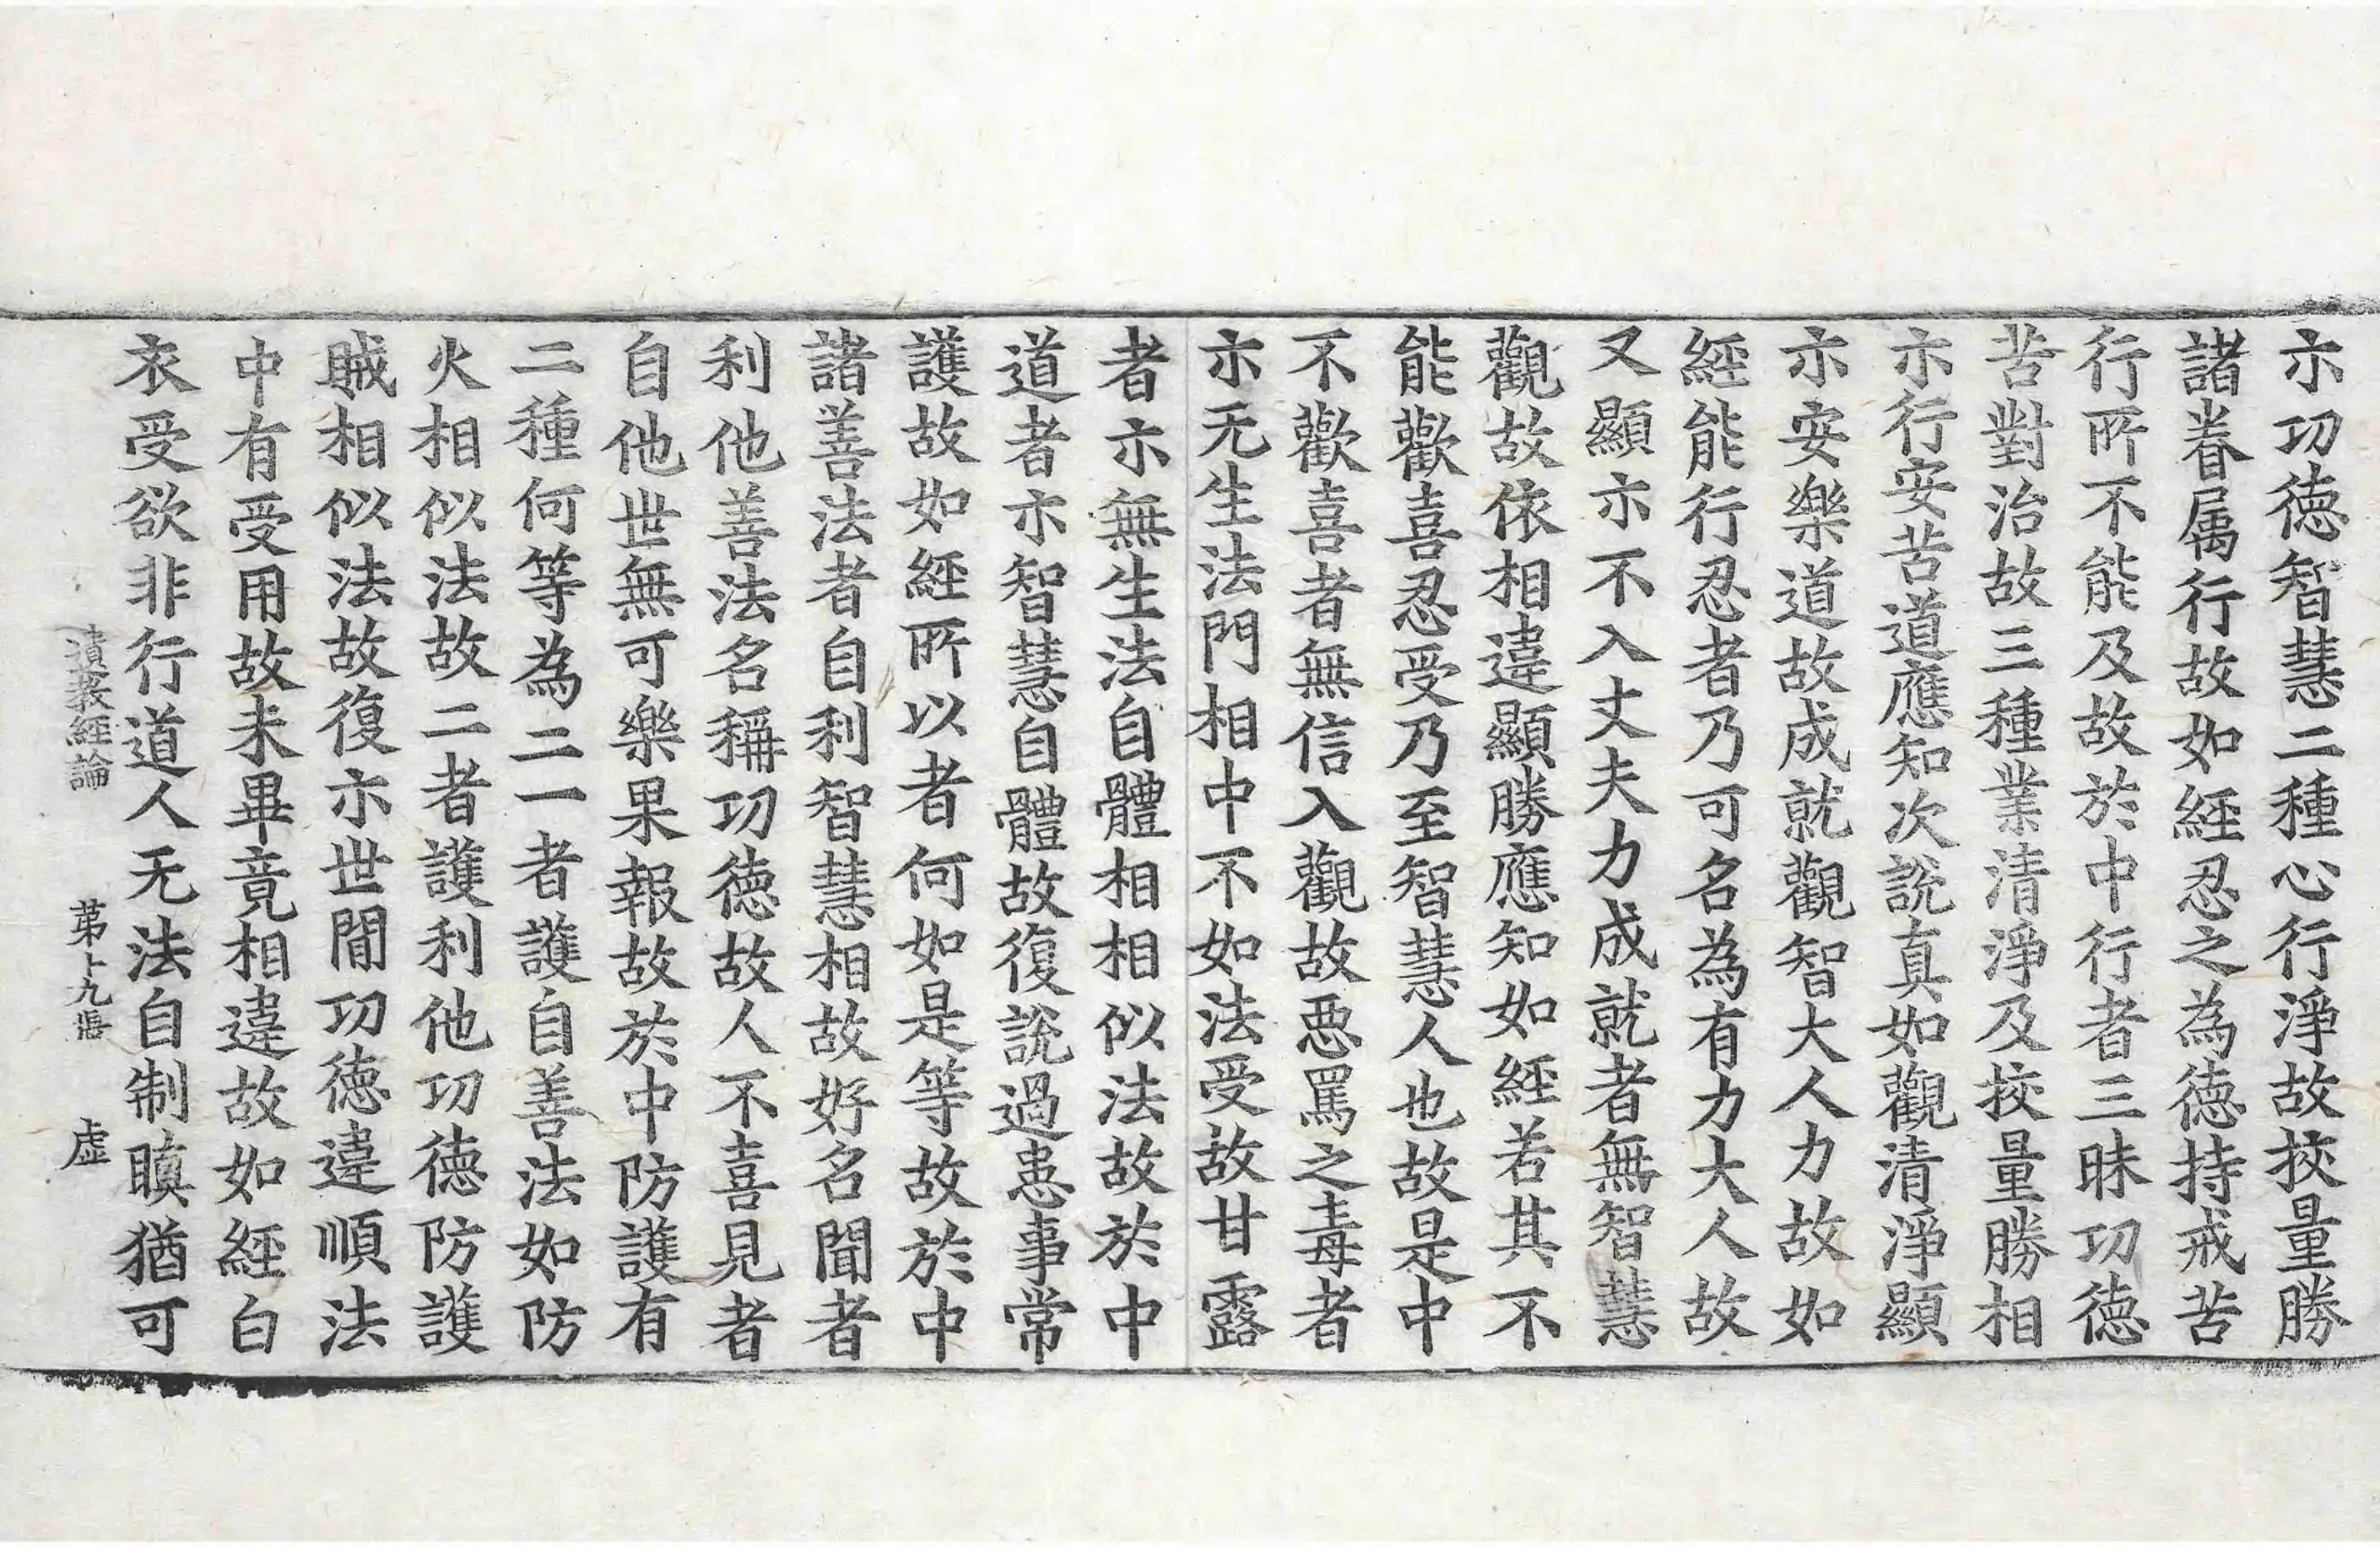 亦功徳智慧二種心行淨故挍量勝
諸眷属行故如經忍之為徳持戒苦
行所不能及故於中行者三昧功徳
苦對治故三種業清淨及挍量勝相
亦行安苦道應知次説真如觀清淨顯
亦安樂道故成就觀智大人力故如
經能行忍者乃可名為有力大人故
又顯亦不入丈夫力成就者無智慧
觀故依相違顯勝應知如經若其不
能歡喜忍受乃至智慧人也故是中
不歡喜者無信入觀故惡罵之毒者
亦无生法門相中不如法受故甘露
者亦無生法自體相相似法故於中
道者亦智慧自體故復説過患事常
護故如經所以者何如是等故於中
諸善法者自利智慧相故好名聞者
利他善法名稱功徳故人不喜見者
自他世無可樂果報故於中防護有
二種何等為二一者護自善法如防
火相似法故二者護利他功徳防護
賊相似法故復亦世間功徳違順法
中有受用故未畢竟相違故如經白
衣受欲非行道人无法自制瞋猶可
遺教經論　第十九張　虛